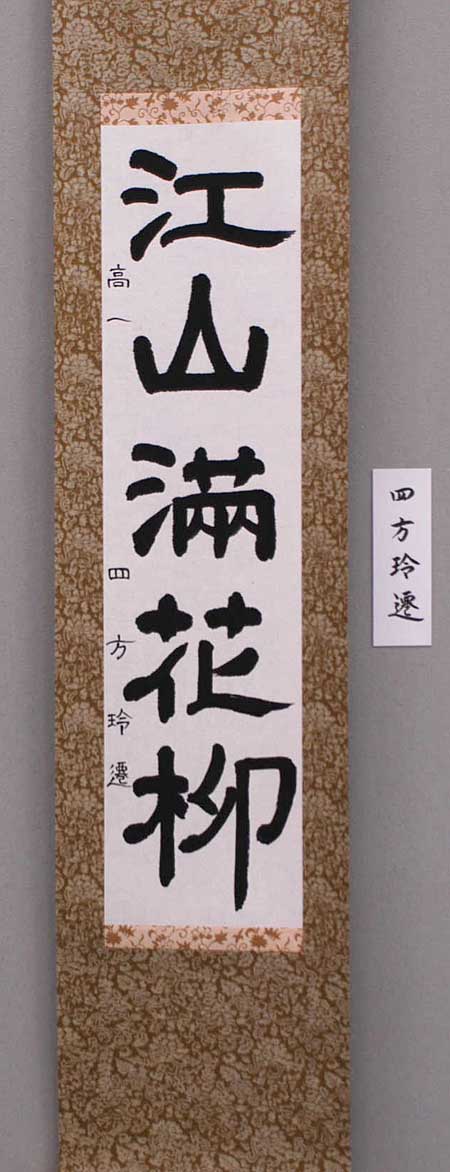 江山満花柳
高一 四方玲遷
四方玲遷